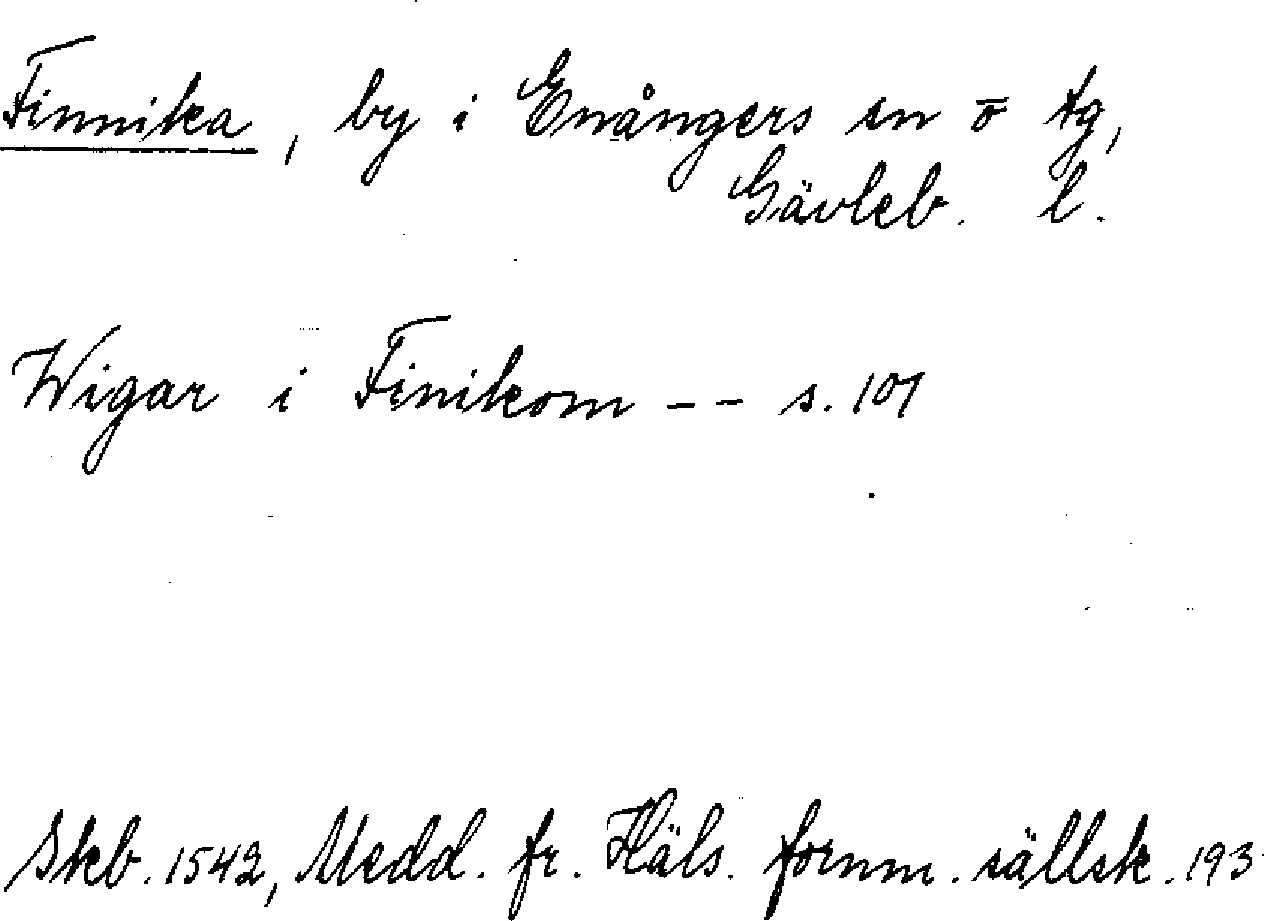 Finnika, by i Enångers sn ō tg,
Gävleb. l.
Wigar i Finikom -- s. 107
Skb. 1542, Medd. fr. Häls. fornm. sällsk. 193